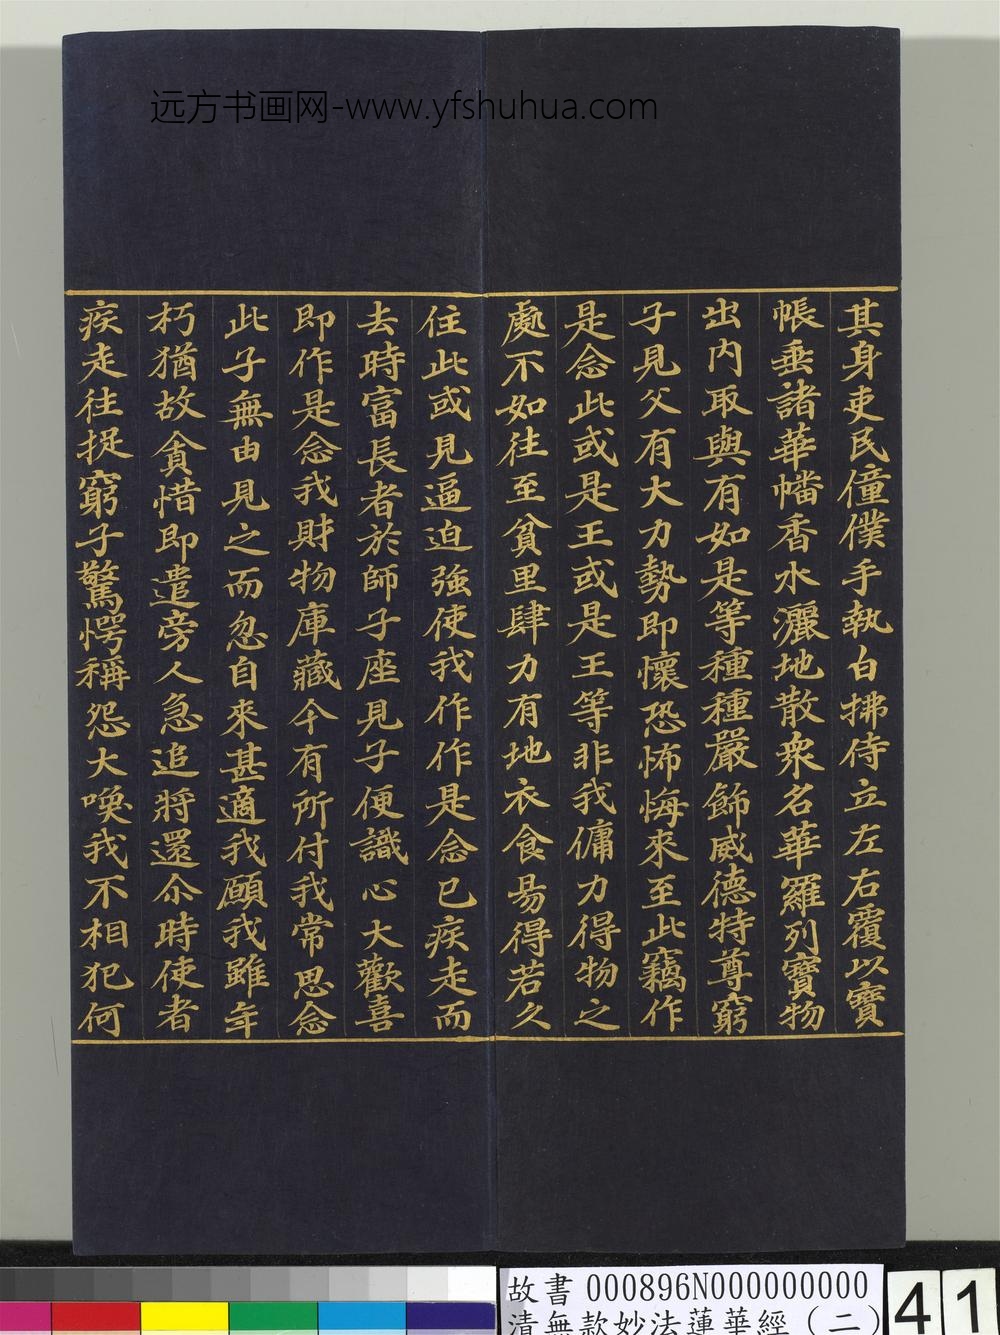 远方书画网-www.yfshuhua.com
其身吏民僮僕手執白拂侍立左右覆以寶
帳垂諸華幡香水灑地散衆名華羅列寶物
出内取與有如是等種種嚴飾威德特尊窮
子見父有大力勢即懷恐怖悔來至此竊作
是念此或是王或是王等非我傭力得物之
處不如往至貧里肆力有地衣食易得若久
住此或見逼迫強使我作作是念已疾走而
去時富長者於師子座見子便識心大歡喜
即作是念我財物庫藏今有所付我常思念
此子無由見之而忽自來甚適我願我雖年
朽猶故貪惜即遣旁人急追將還尒時使者
疾走往捉窮子驚愕稱怨大喚我不相犯何
故書 000896N000000000
清無款妙法蓮華經（二）
41